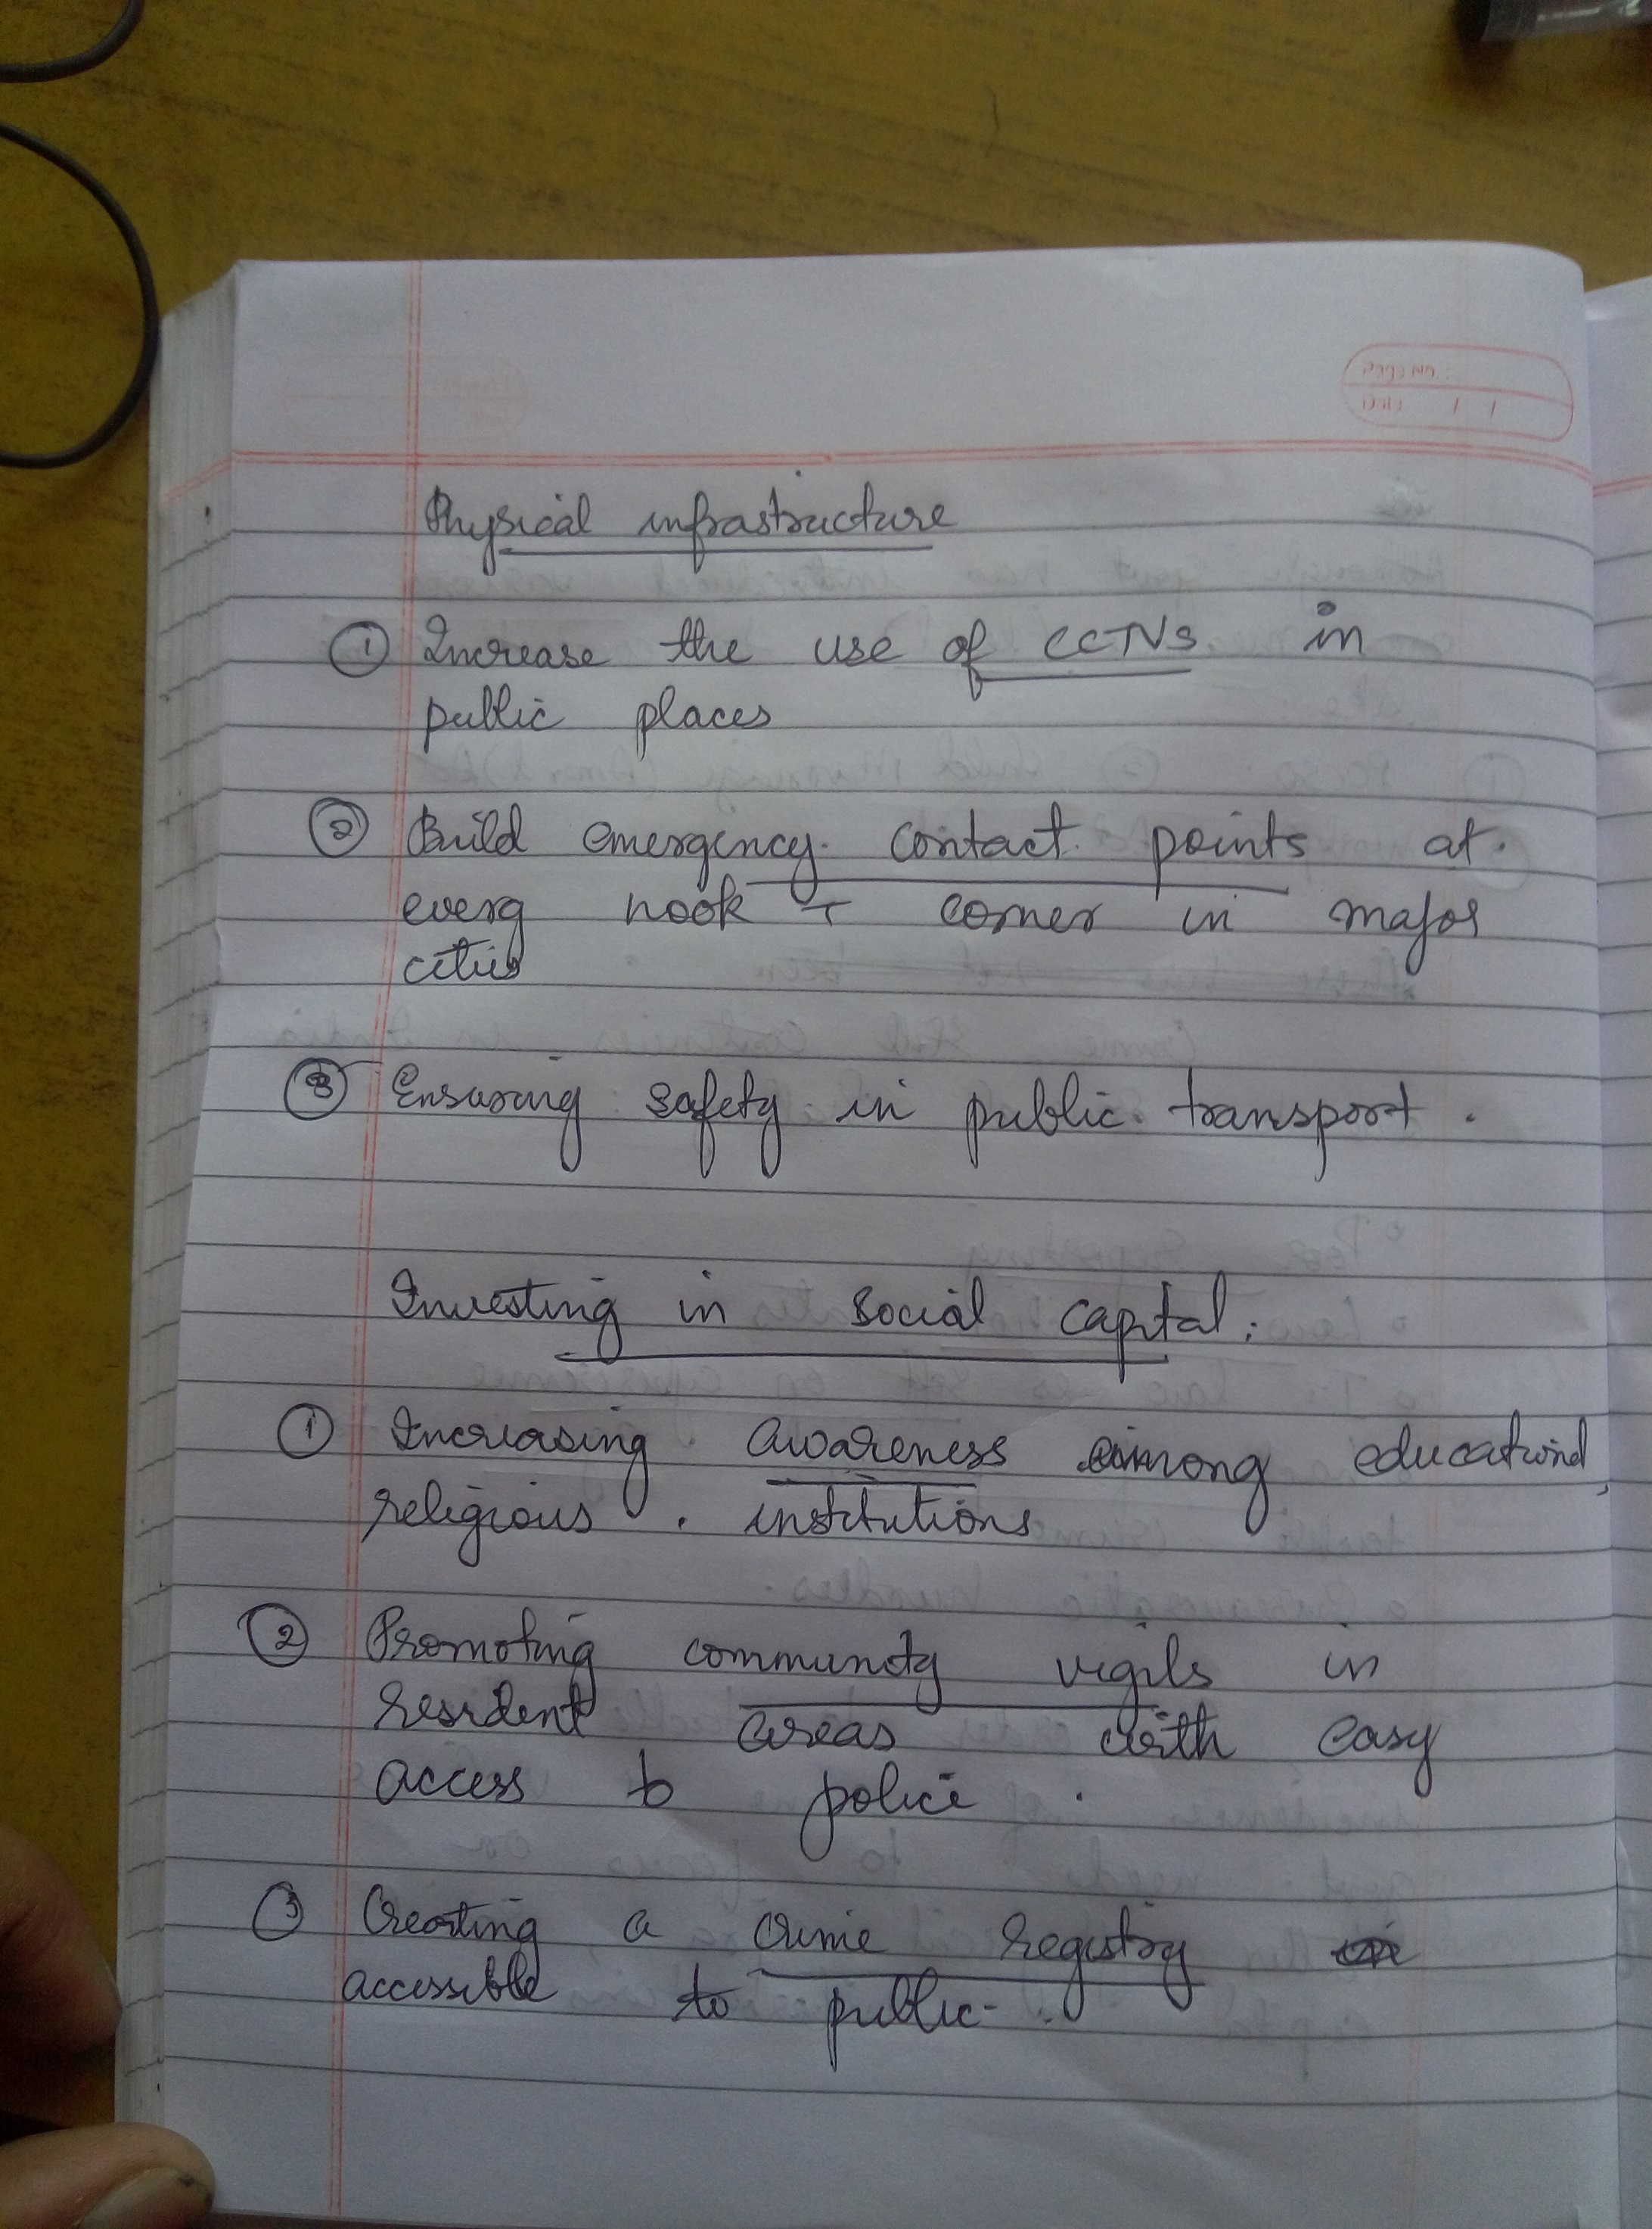 Page No. :
Date / /
Physical infrastructure
① Increase the use of CCTVs in
public places
② Build emergency contact points at
every nook + corner in major
cities
③ Ensuring safety in public transport.
Investing in social capital:
① Increasing awareness among educational,
religious institutions
② Promoting community vigils in
resident areas with easy
access to police.
③ Creating a crime registry
accessible to public.